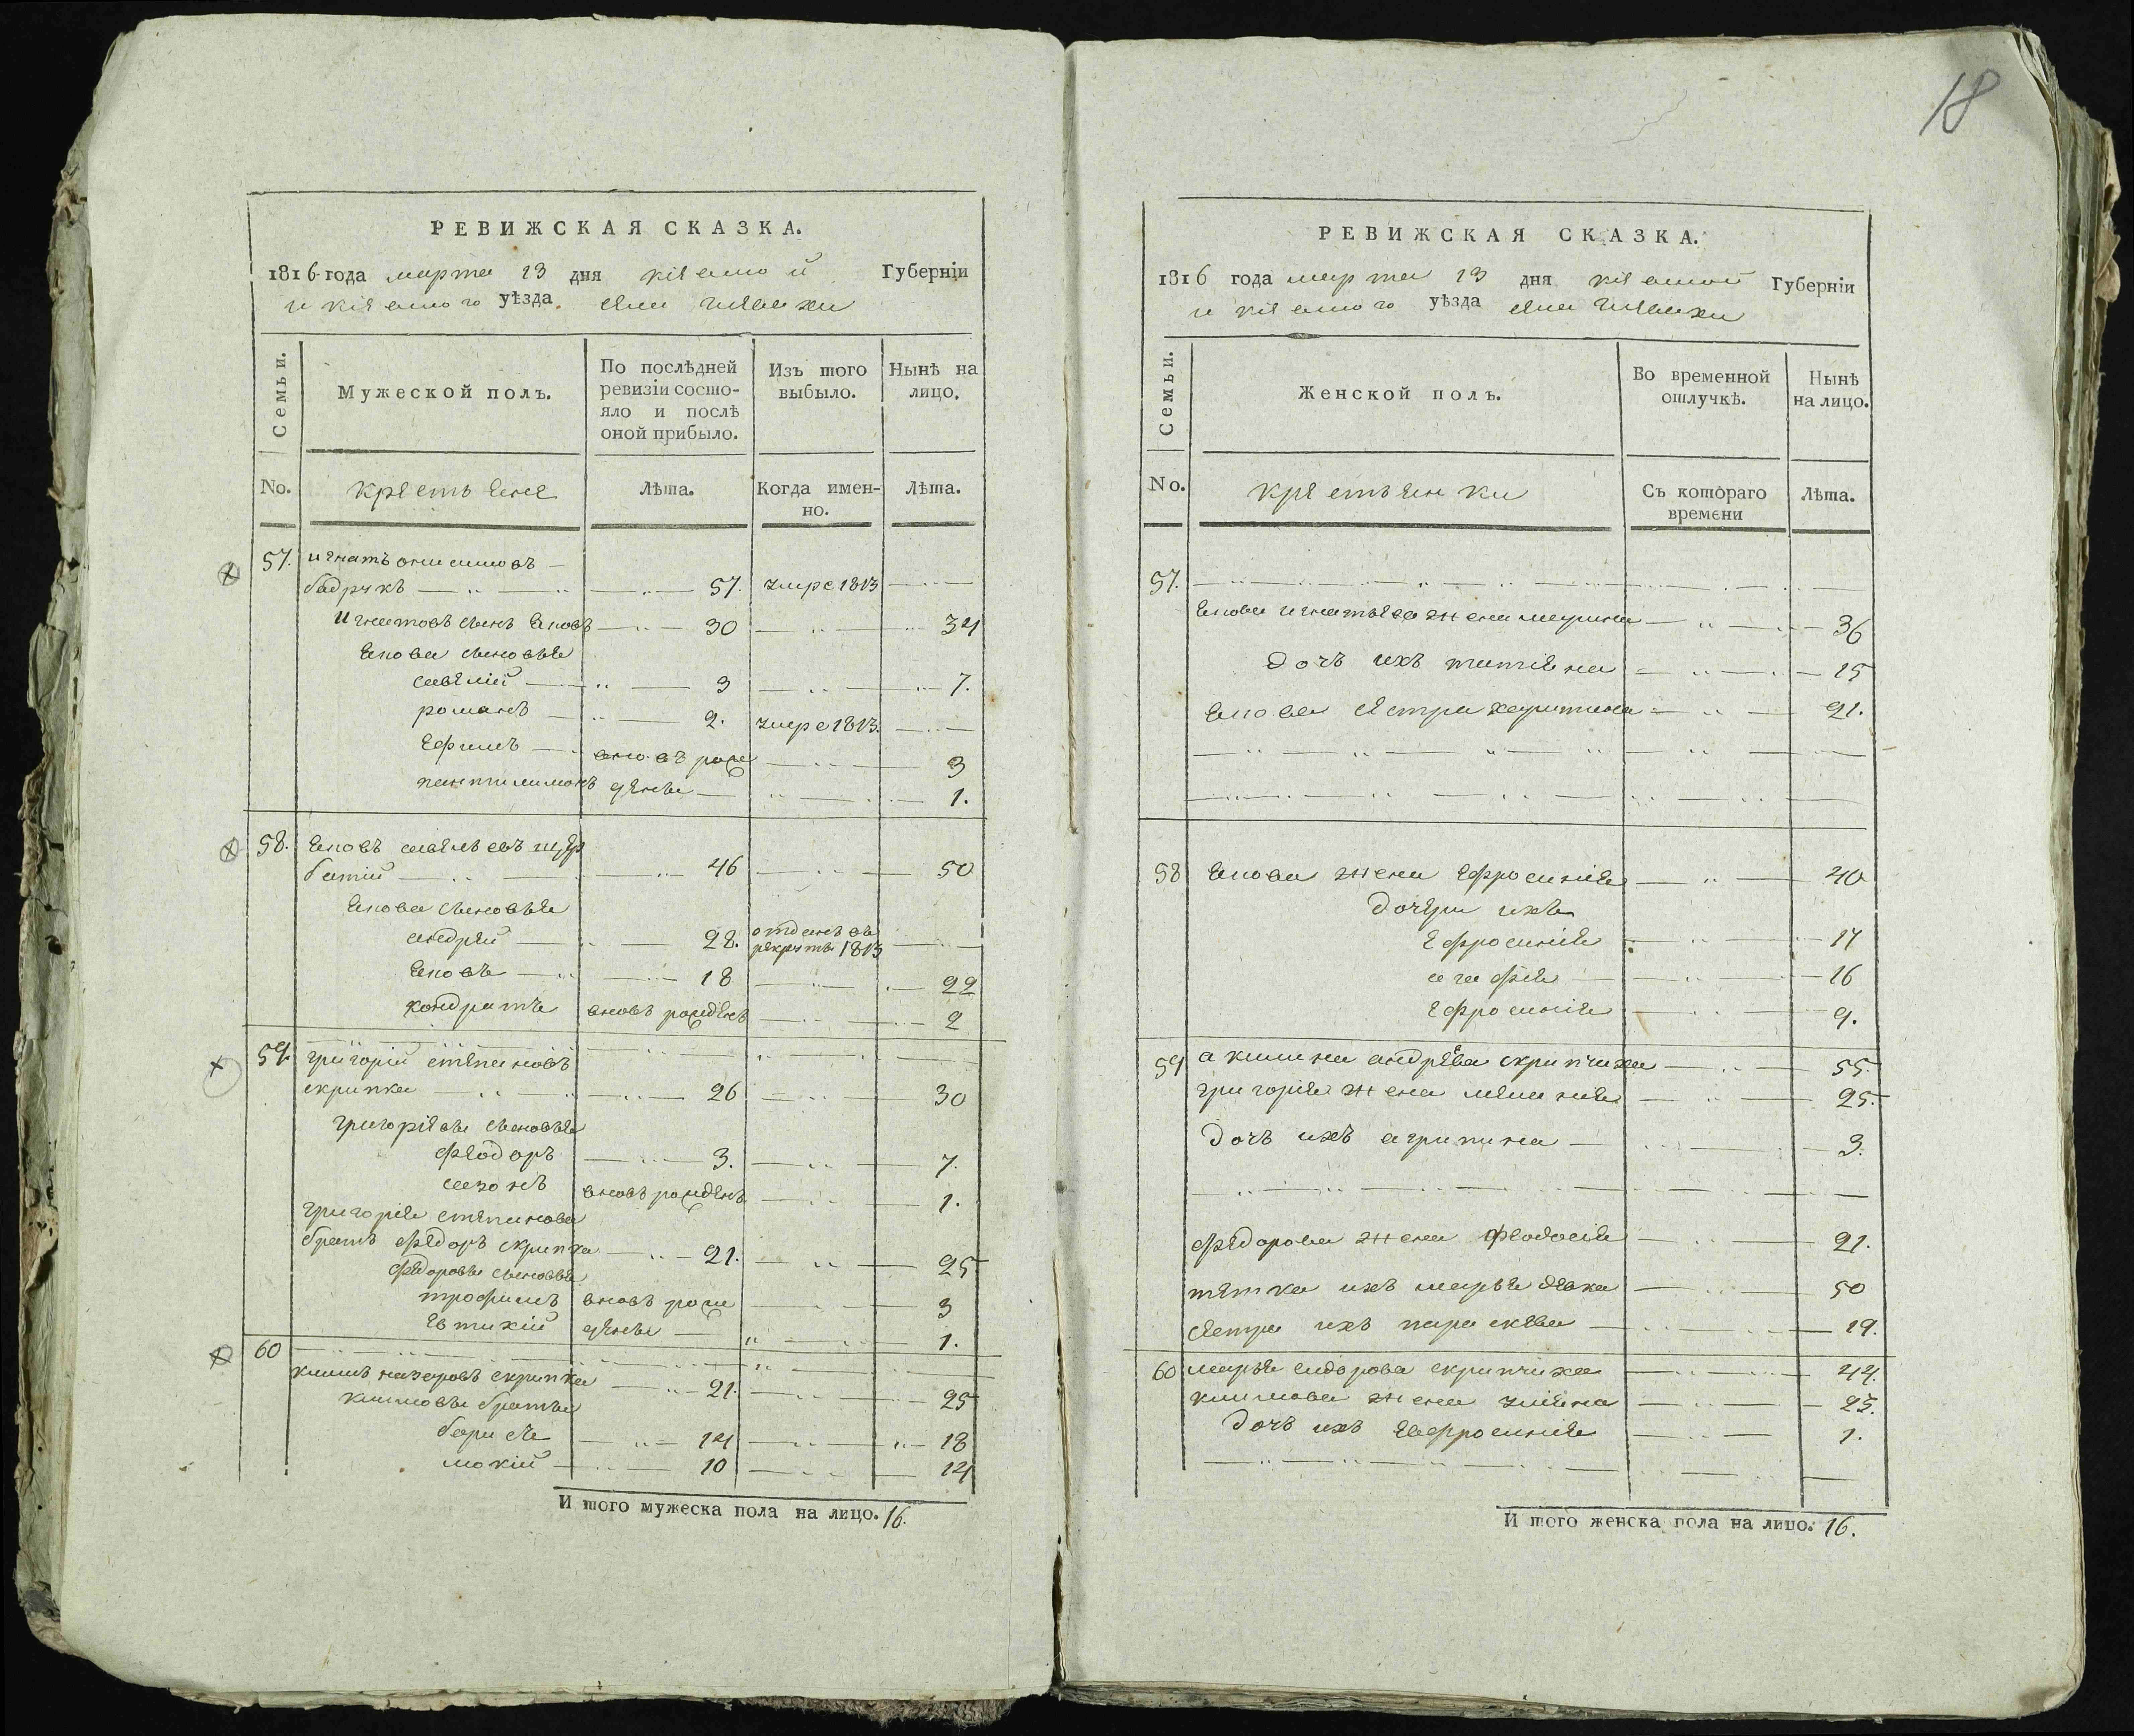 18
РЕВИЖСКАЯ СКАЗКА.
1816 года марта 13 дня кіевской Губерніи
и кіевского уѣзда
Семьи.
Мужеской полъ.
По послѣдней ревизіи состояло и послѣ оной прибыло.
Изъ того выбыло.
Нынѣ на лицо.
No. крестьяне Лѣта. Когда именно. Лѣта.
57. игнатъ онисимовъ
57. умре 1813
игнатовъ сынъ яковъ 30 34
якова сыновья
савелій 3 7.
романъ 2. умре 1813.
ефимъ вновь рож 3
пантилимонъ дены 1.
58. яковъ савельевъ щер
батий 46 50
якова сыновья
андрей 28. отданъ въ рекруты 1813
яковъ 18 22
кондратъ вновь рожденъ 2
59. григорій степановъ
скрипка 26 30
григоріевы сыновья
феодоръ 3. 7.
сазонъ вновь рожденъ 1.
григорія степанова
братъ федоръ скрипка 21. 25
федоровы сыновья
трофимъ вновь рож 3
евтихій дены 1.
60
климъ назаровъ скрипка 21. 25
климовы братья
борисъ 14 18
мокій 10 14
И того мужеска пола на лицо. 16.
РЕВИЖСКАЯ СКАЗКА.
1816 года марта 13 дня кіевской Губерніи
и кіевского уѣзда
Семьи.
Женской полъ.
Во временной отлучкѣ.
Нынѣ на лицо.
No. крестьянки Съ котораго времени Лѣта.
57.
якова игнатьева жена марина 36
дочь ихъ татіяна 15
якова сестра харитина 21.
58 якова жена ефросинія 40
дочери ихъ
ефросинія 17
агафія 16
ефросинія 9.
59 акилина андрѣева скрипчиха 55.
григорія жена меланія 25.
дочь ихъ агрипина 3.
федорова жена феодосія 21.
тетка ихъ марья девка 50
сестра ихъ параскева 19.
60 марья сидорова скрипчиха 44.
климова жена улияна 25.
дочь ихъ евфросинія 1.
И того женска пола на лицо. 16.